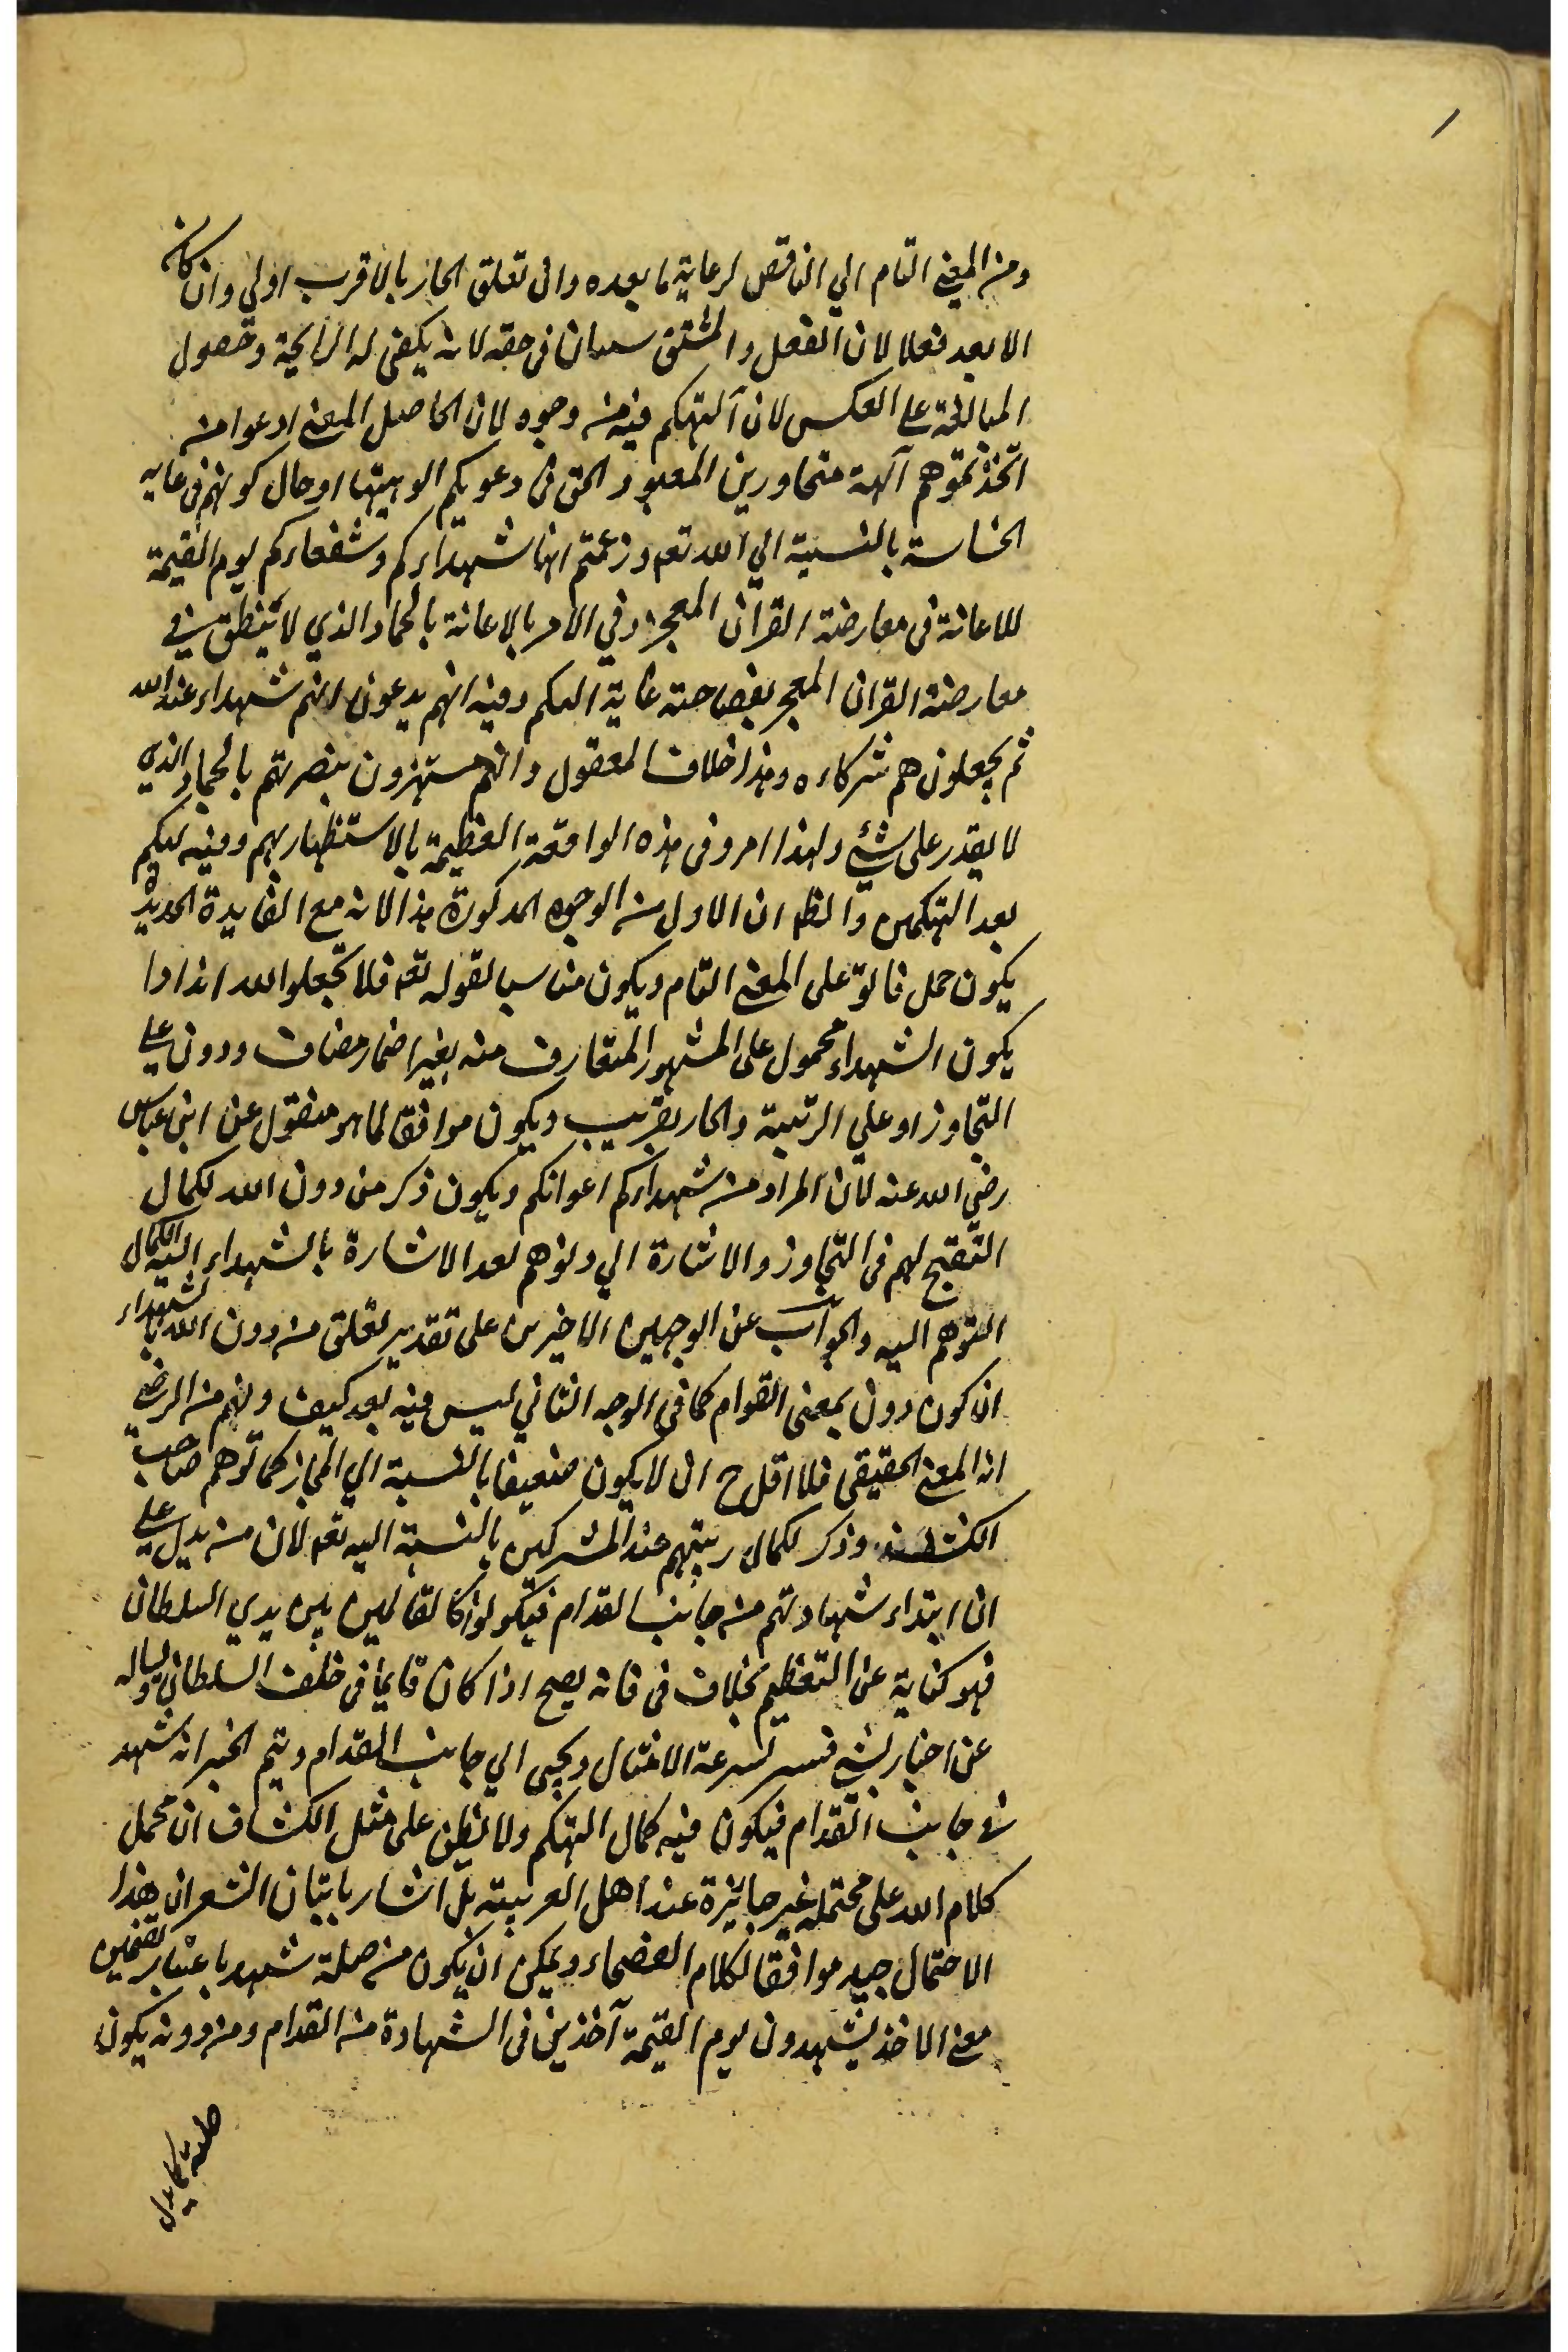 ١
ومن المعنى التام الي الناقص لرعاية ما بعده وان تعلق الجار بالاقرب اولي وان كان
الابعد فعلا لان الفعل والمشتق سيان فى حقه لانه يكفى له الرايحة وحصول
المبالغة على العكس لان التهكم فيه من وجوه لان الحاصل المعنى ادعوا من
اتخذتموهم آلهة متجاورين المعبود الحق فى دعويكم الوهيتها او حال كونهم فى غاية
الخساسة بالنسبة الي الله تعـ وزعمتم انها شهداءكم وشفعاءكم يوم القيمة
للاعانة فى معارضة القران المعجز وفي الامر بالاعانة بالجماد الذي لا ينطق في
معارضة القران المعجز بفصاحته غاية التهكم وفيه انهم يدعون انهم شهداء عند الله
ثم يجعلون هم شركاءه وهذا خلاف المعقول وانهم مستهزون بنصرتهم بالجماد الذي
لا يقدر على شئ ولهذا امروا فى هذه الواقعة العظيمة بالاستظهار بهم وفيه تهكم
بعد التهكمين والظـ ان الاول من الوجوه المذكورة هذا لانه مع الفايدة الجديدة
يكون حمل فأتوا على المعنى التام ويكون مناسبا لقوله تعـ فلا تجعلوا لله اندادا
يكون الشهداء محمول على المشهور المتعارف منه بغير اضمار مضاف ودون على
التجاوز او على الرتبة والجار بقريب ويكون موافقا لما هو منقول عن ابن عباس
رضي الله عنه لان المراد من شهداءكم اعوانكم ويكون ذكر من دون الله لكمال
التقبح لهم فى التجاوز والاشارة الي دنوهم بعد الاشارة بالشهداء الي الكمال
التوهم اليه والجواب عن الوجهين الاخيرين على تقدير تعلق من دون الله بالشهداء
ان كون دون بمعنى القدام كما فى الوجه الثاني ليس فيه بعد كيف وفهم من الرضي
انه المعنى الحقيقى فلا اقل ح ان لا يكون ضعيفا بالنسبة الي المجاز كما توهم صاحب
الكشف وذكر لكمال رتبتهم عند المشركين بالنسبة اليه تعـ لان من يدل على
ان ابتداء شهادتهم من جانب القدام فيكونوا كالقائمين بين يدي السلطان
فهو كناية عن التعظيم بخلاف فى فانه يصح اذا كان قايما فى خلف السلطان
عن اخبار لشئ لسرعة الامتثال ويجئ الي جانب القدام ويتم الخبر انه شهد
في جانب القدام فيكون فيه كمال التهكم ولا يظن على مثل الكشاف ان محمل
كلام الله على محتمل غير جائزة عند اهل العربية بل اشار باتيان الشعر ان هذا
الاحتمال جيد موافقا لكلام الفصحاء ويمكن ان يكون من صلة شهد باعتبار تضمين
معنى الاخذ يشهدون يوم القيمة آخذين فى الشهادة من القدام ومن دونه يكون